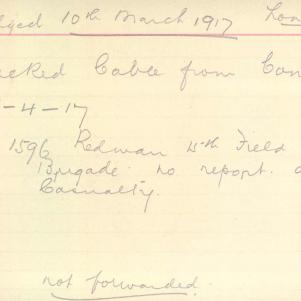 dged 10th March 1917 Lon
cked Cable from Con
-4-17
1596 Redman 15th Field
Brigade no report. o
Casualty.
not forwarded.